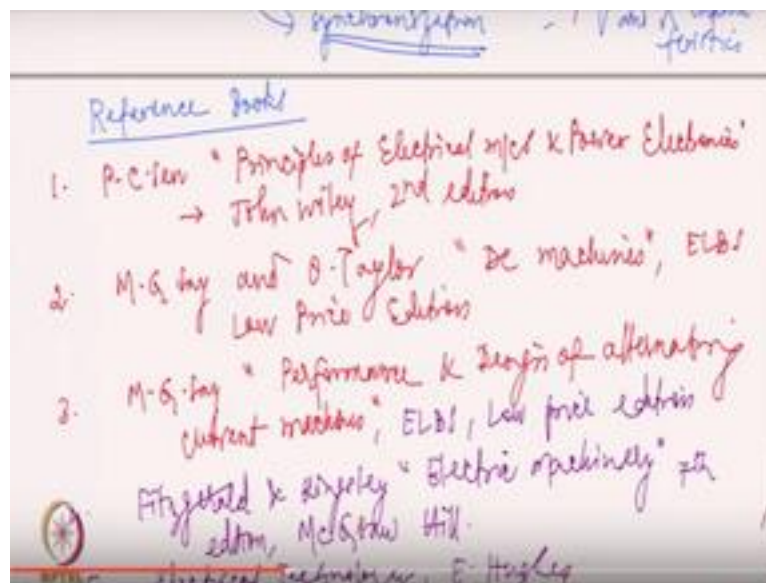 → Synchronization - and
feristics
Reference Books
1. P.C. Sen "Principles of Electrical m/cs & Power Electronics"
→ John Wiley, 2nd edition
2. M.G. Say and O. Taylor "DC machines", ELBS
Low Price Edition
3. M.G. Say "Performance & Design of alternating
current machines", ELBS, Low price edition
Fitzgerald & Kingsley "Electric machinery" 7th
edition, McGraw Hill.
Electrical Technology, E. Hughes